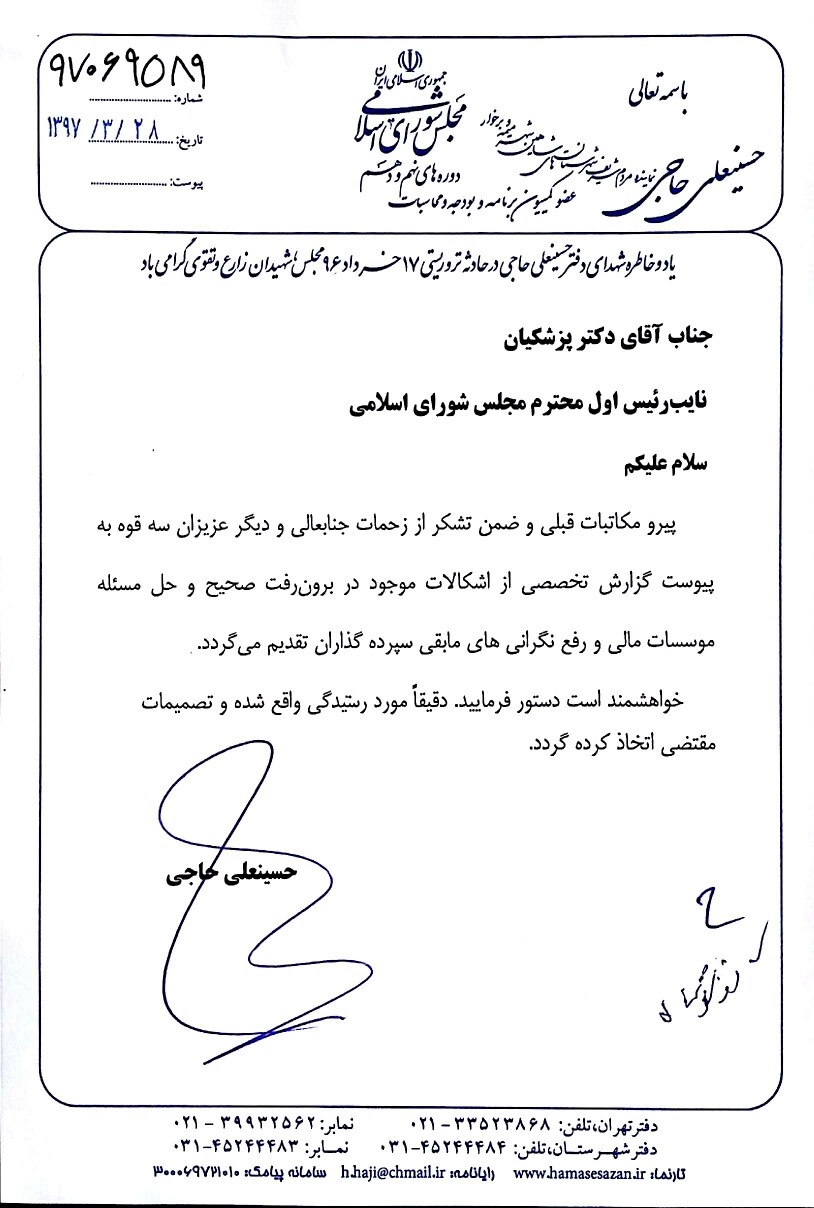 باسمه تعالی
جمهوری اسلامی ایران
مجلس شورای اسلامی
دوره های نهم و دهم
حسینعلی حاجی
نماینده مردم شریف شهرستان های شاهین شهر و میمه و برخوار
عضو کمیسیون برنامه و بودجه و محاسبات
شماره: ۹۷۰۶۹۵۸۹
تاریخ: ۱۳۹۷/۳/۲۸
پیوست:
یاد و خاطره شهدای دفتر حسینعلی حاجی در حادثه تروریستی ۱۷ خرداد ۹۶ مجلس؛ شهیدان زارع و تقوی گرامی باد
جناب آقای دکتر پزشکیان
نایب‌رئیس اول محترم مجلس شورای اسلامی
سلام علیکم
پیرو مکاتبات قبلی و ضمن تشکر از زحمات جنابعالی و دیگر عزیزان سه قوه به
پیوست گزارش تخصصی از اشکالات موجود در برون‌رفت صحیح و حل مسئله
موسسات مالی و رفع نگرانی های مابقی سپرده گذاران تقدیم می‌گردد.
خواهشمند است دستور فرمایید. دقیقاً مورد رستیدگی واقع شده و تصمیمات
مقتضی اتخاذ کرده گردد.
حسینعلی حاجی
دفتر تهران، تلفن: ۳۳۵۲۳۸۶۸ - ۰۲۱ نمابر: ۳۹۹۳۲۵۶۲ - ۰۲۱
دفتر شهرستان، تلفن: ۴۵۲۴۴۴۸۴-۰۳۱ نمابر: ۴۵۲۴۴۴۸۳-۰۳۱
تارنما: www.hamasesazan.ir رایانامه: h.haji@chmail.ir سامانه پیامک: ۳۰۰۰۶۹۷۲۱۰۱۰